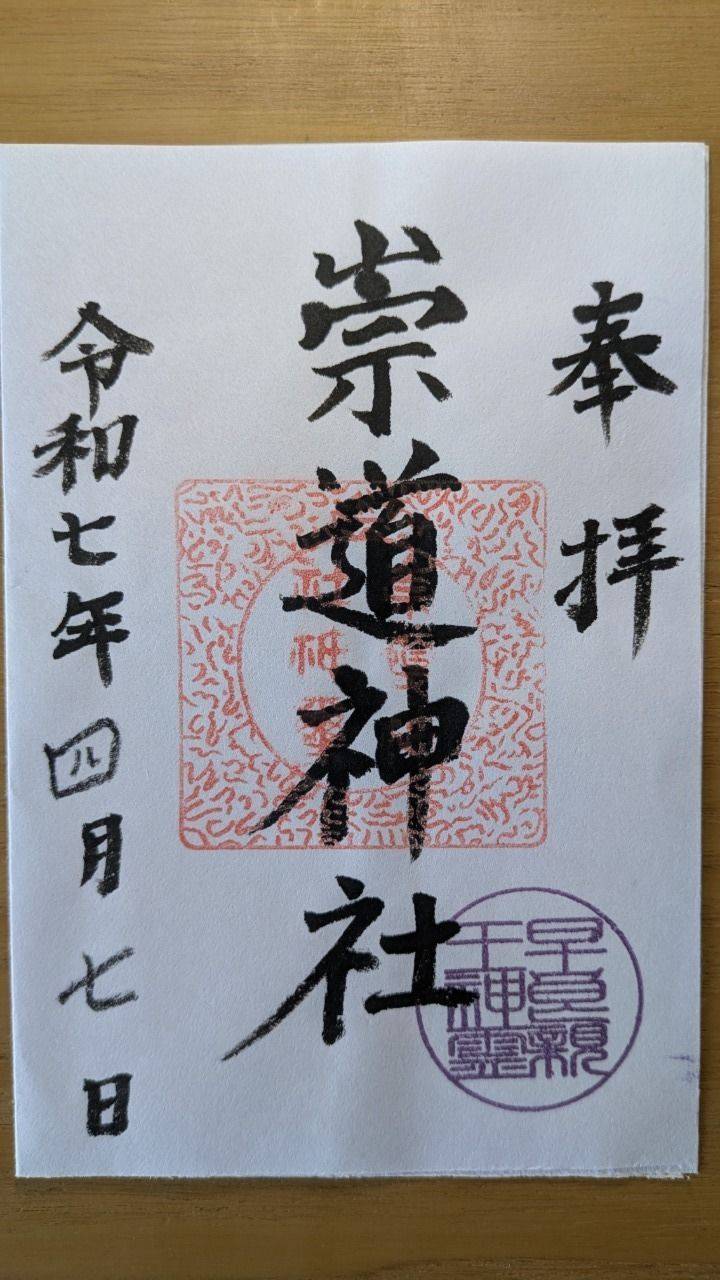 奉拝
崇道神社
令和七年四月七日
早良親
王神霊